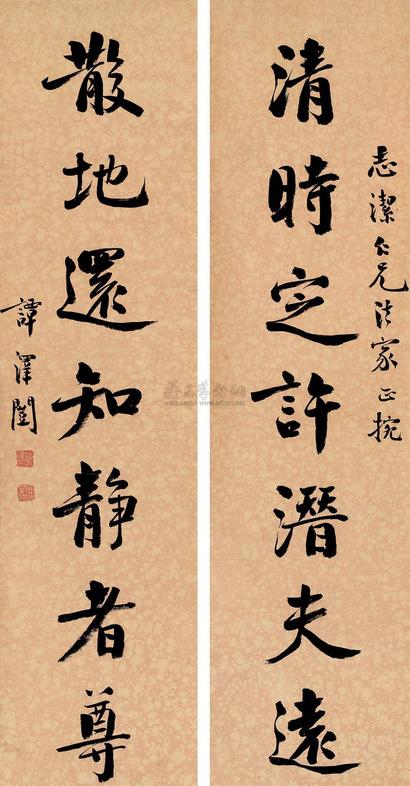 志潔仁兄法家正捥
清時定許潛夫遠
散地還知靜者尊
譚澤闓